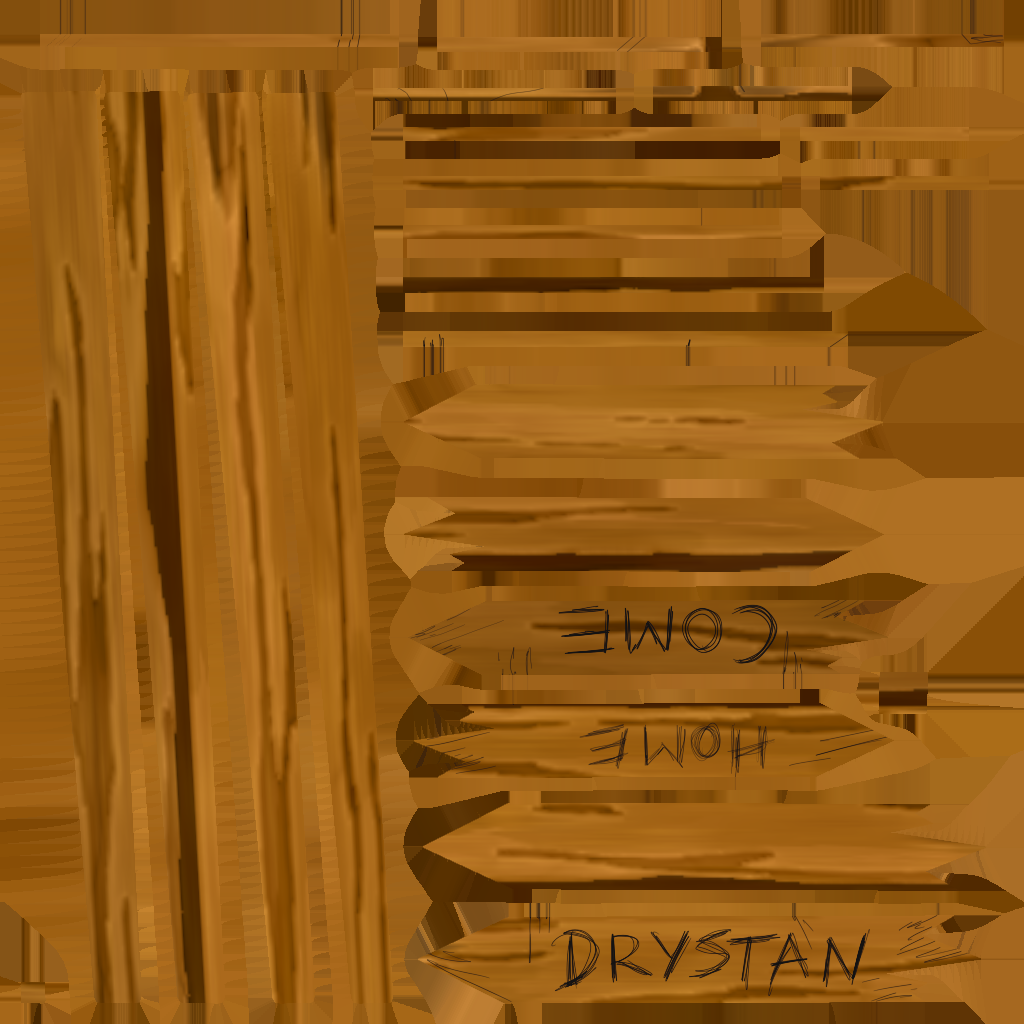 COME
HOME
DRYSTAN